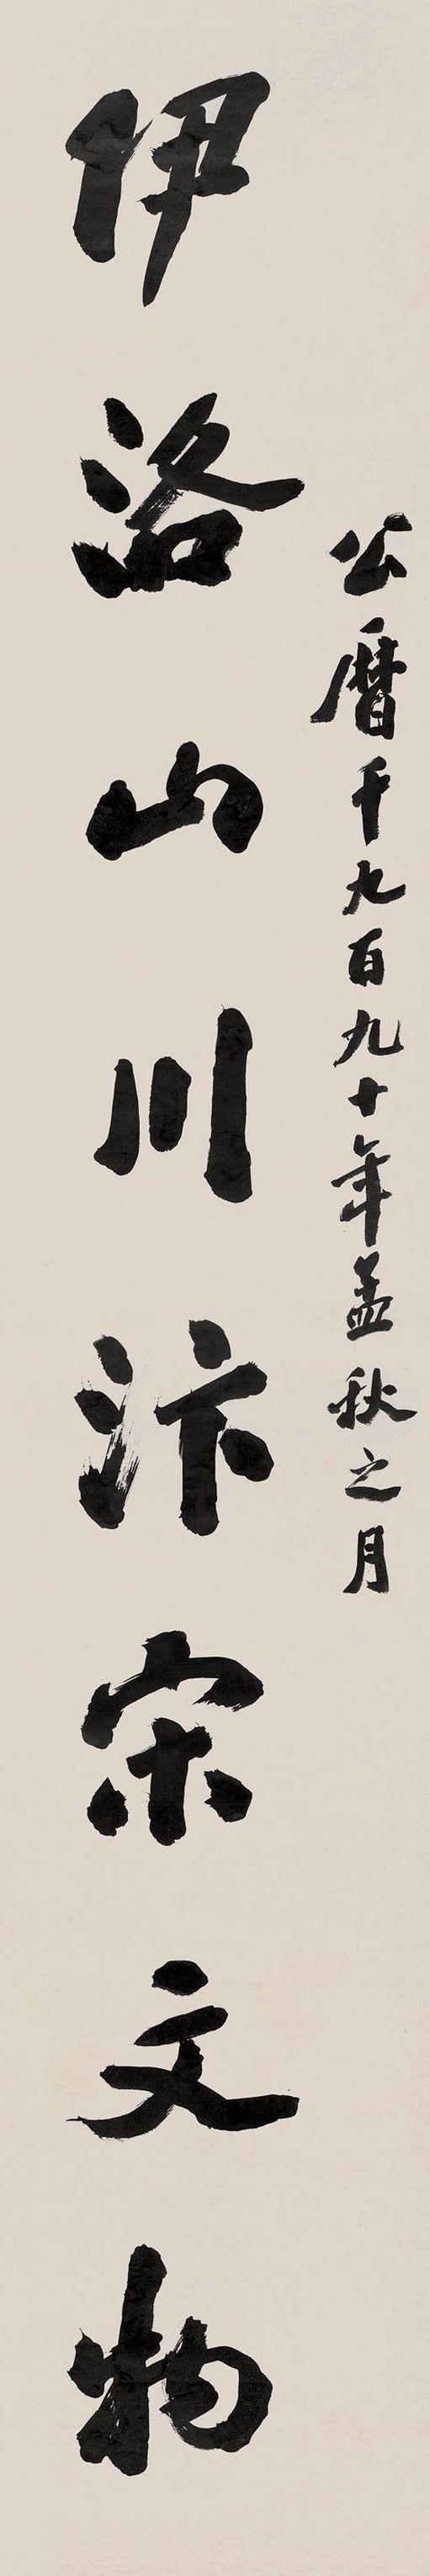 公曆千九百九十年孟秋之月
伊洛山川汴宋文物